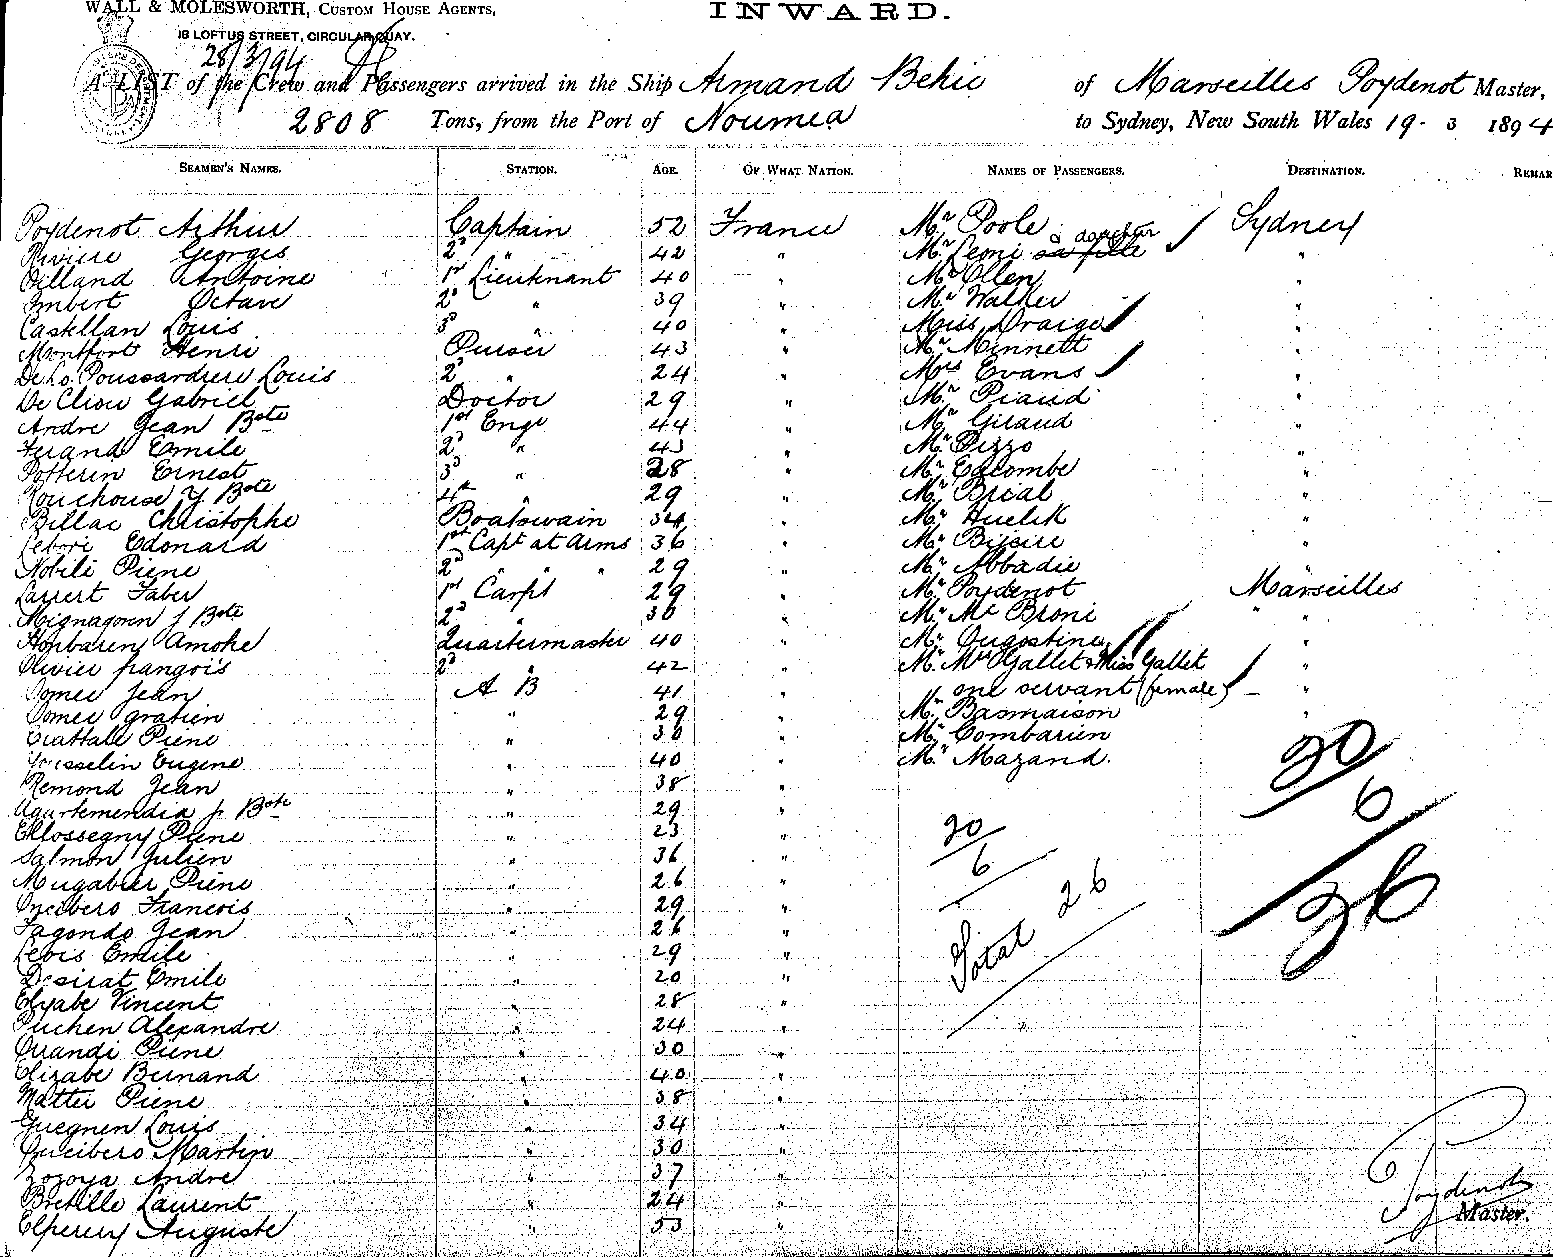 WALL & MOLESWORTH, CUSTOM HOUSE AGENTS,
INWARD.
18 LOFTUS STREET, CIRCULAR QUAY.
28/3/94
A LIST of the Crew and Passengers arrived in the Ship Armand Behic of Marseilles Poydenot Master,
2808 Tons, from the Port of Noumea to Sydney, New South Wales 19-3 1894
SEAMEN'S NAMES. STATION. AGE. OF WHAT NATION. NAMES OF PASSENGERS. DESTINATION. REMAR
Poydenot Arthur Captain 52 France Mr Poole Sydney
Riviere Georges 2d " 42 " Mr Lemi & daughter sa fille "
Dilland Antoine 1st Lieutenant 40 " Mr Ollen "
Imbert Octave 2d " 39 " Mr Walker "
Castellan Louis 3d " 40 " Miss Draige "
Montfort Henri Purser 43 " Mr Minnett "
De La Poussardiere Louis 2d " 24 " Mrs Evans "
De Clieu Gabriel Doctor 29 " Mr Piaud "
Andre Jean Bote 1st Engr 44 " Mr Giraud "
Ferand Emile 2d " 43 " Mr Pizzo "
Potterin Ernest 3d " 28 " Mr Edcombe "
Rouchouse J Bote 4th " 29 " Mr Brial "
Billac Christophe Boatswain 34 " Mr Huelik "
Lebori Edonard 1st Capt at Arms 36 " Mr "
Nobili Pierre 2d " " " 29 " Mr Abbadie "
Larrert Faber 1st Carpt 29 " Mr Poydenot Marseilles
Mignagoun J Bote 2d " 30 " Mr Mc Broni "
Amoke Quartermaster 40 " Mr Augostine "
Olivier françois 2d " 42 " Mr Mrs Gallet & Miss Gallet "
Comer Jean A B 41 " one servant (female) "
Comer gratien " 29 " Mr Basmaison "
Crattale Pierre " 30 " Mr Combarien
Jousselin Eugene " 40 " Mr Mazand.
Remond Jean " 38 "
Aguirtemendia J. Bote " 29 "
Ellossegny Pierre " 23 "
Salmon Julien " 36 "
Mugabier Pierre " 26 "
Oncibero Francois " 29 "
Fagondo Jean " 26 "
Levis Emile " 29 "
Desirat Emile " 20 "
Elyabe Vincent " 28 "
Puchen Alexandre " 24 "
Ouandi Pierre " 30 "
Elizabe Bernand " 40 "
Mattei Pierre " 38 "
Guegnen Louis " 34 "
Oncibero Martin " 30 "
Zozoya Andre " 37 "
Bretille Laurent " 24 "
Elperery Auguste " 53 "
20
6
Total 26
20
6
26
Poydenot
Master.